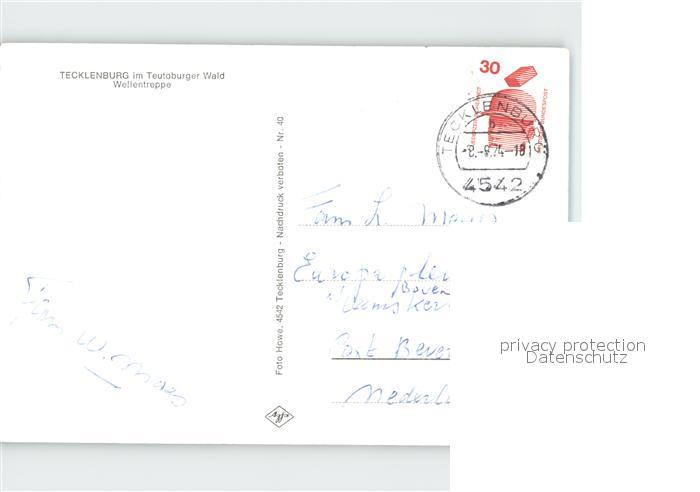 TECKLENBURG im Teutoburger Wald
Wellentreppe
30
TECKLENBURG
b
-8.-8.74-18
4542
Foto Howe, 4542 Tecklenburg - Nachdruck verboten - Nr. 40
Fam
Europaplein
Boven
Port Bever
Nederl
Fam W.
Agfa
privacy protection
Datenschutz